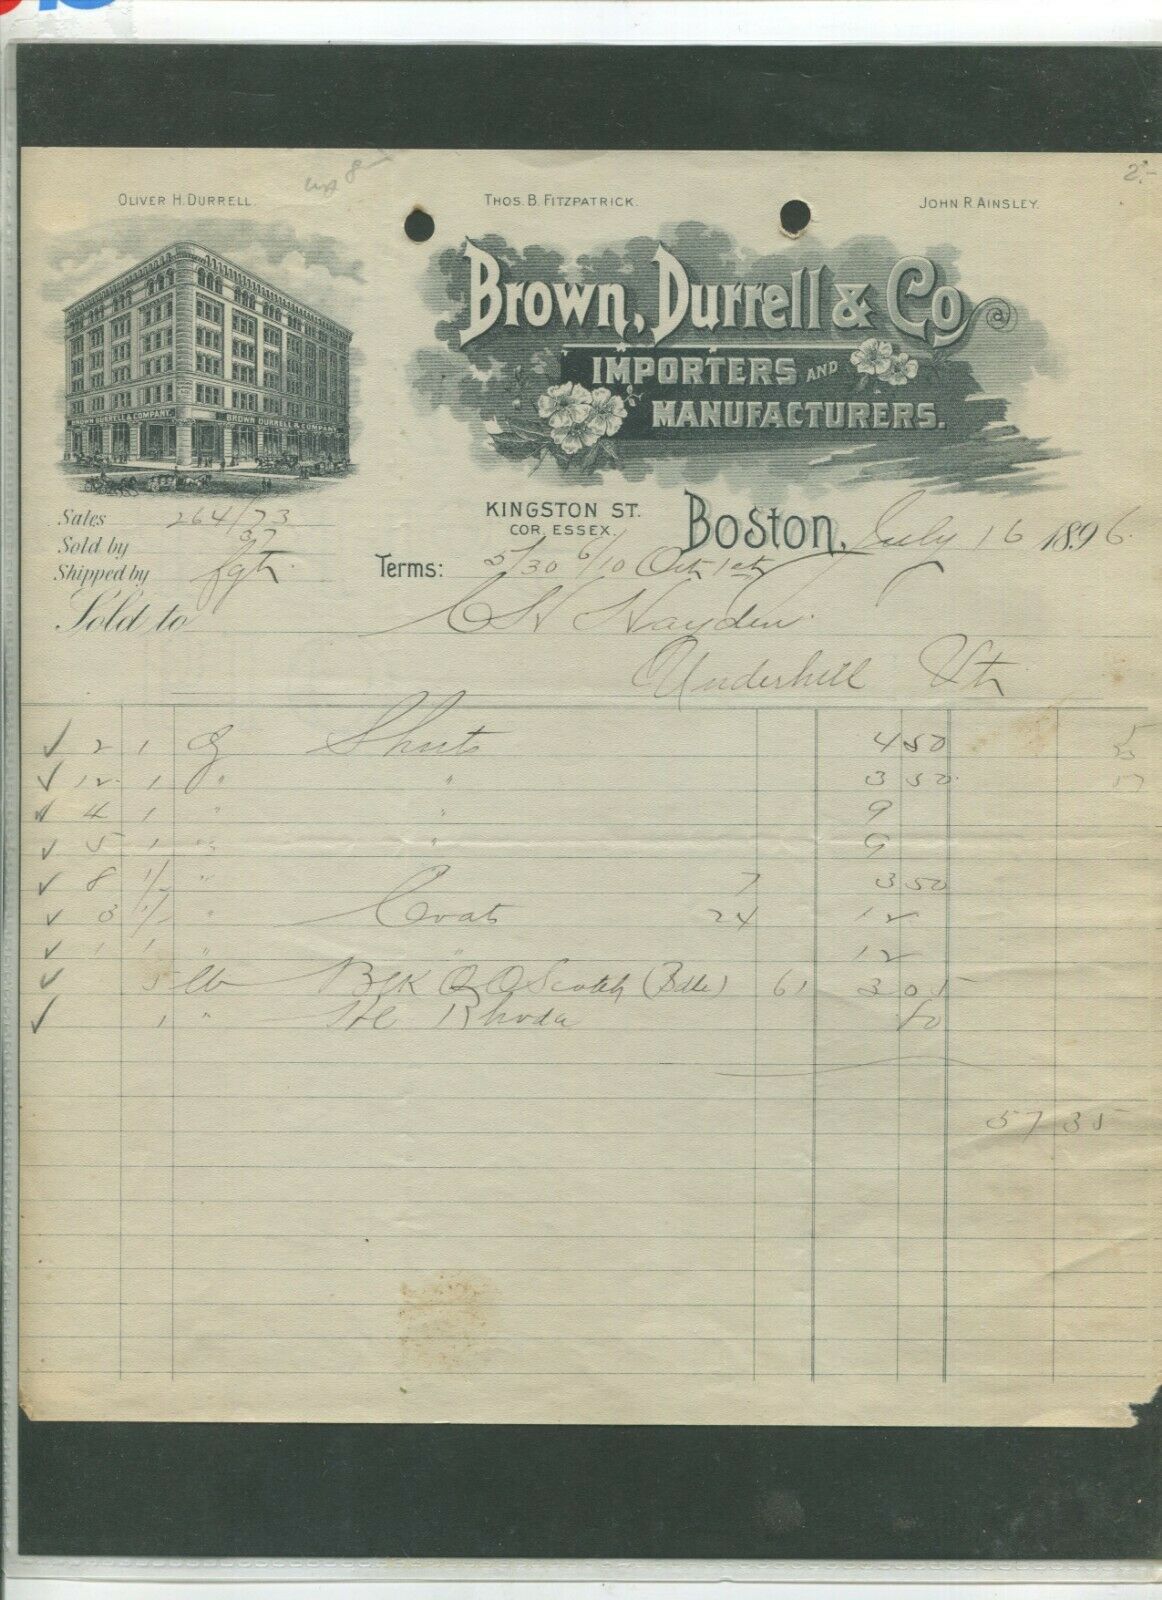 OLIVER H. DURRELL.
THOS. B. FITZPATRICK.
JOHN R. AINSLEY.
BROWN DURRELL & COMPANY.
BROWN DURRELL & COMPANY
Brown, Durrell & Co.
IMPORTERS AND
MANUFACTURERS.
KINGSTON ST.
COR. ESSEX.
Boston, July 16 1896.
Sales 264/73
Sold by 37
Shipped by
Terms: 5/30 6/10 Oct 1st
Sold to C H Hayden
Underhill Vt
✓ 2 1 Shirts 4 50
✓ 12 1 " " 3 50
✓ 4 1 " " 9
✓ 5 1 " " 9
✓ 8 1/2 " 7 3 50
✓ 3 1/2 " Coats 24 12
✓ 1 1 " " 12
✓ 5 lb Blk Scotch (Bdle) 61 3 05
✓ 1 " Rhoda 80
57 35